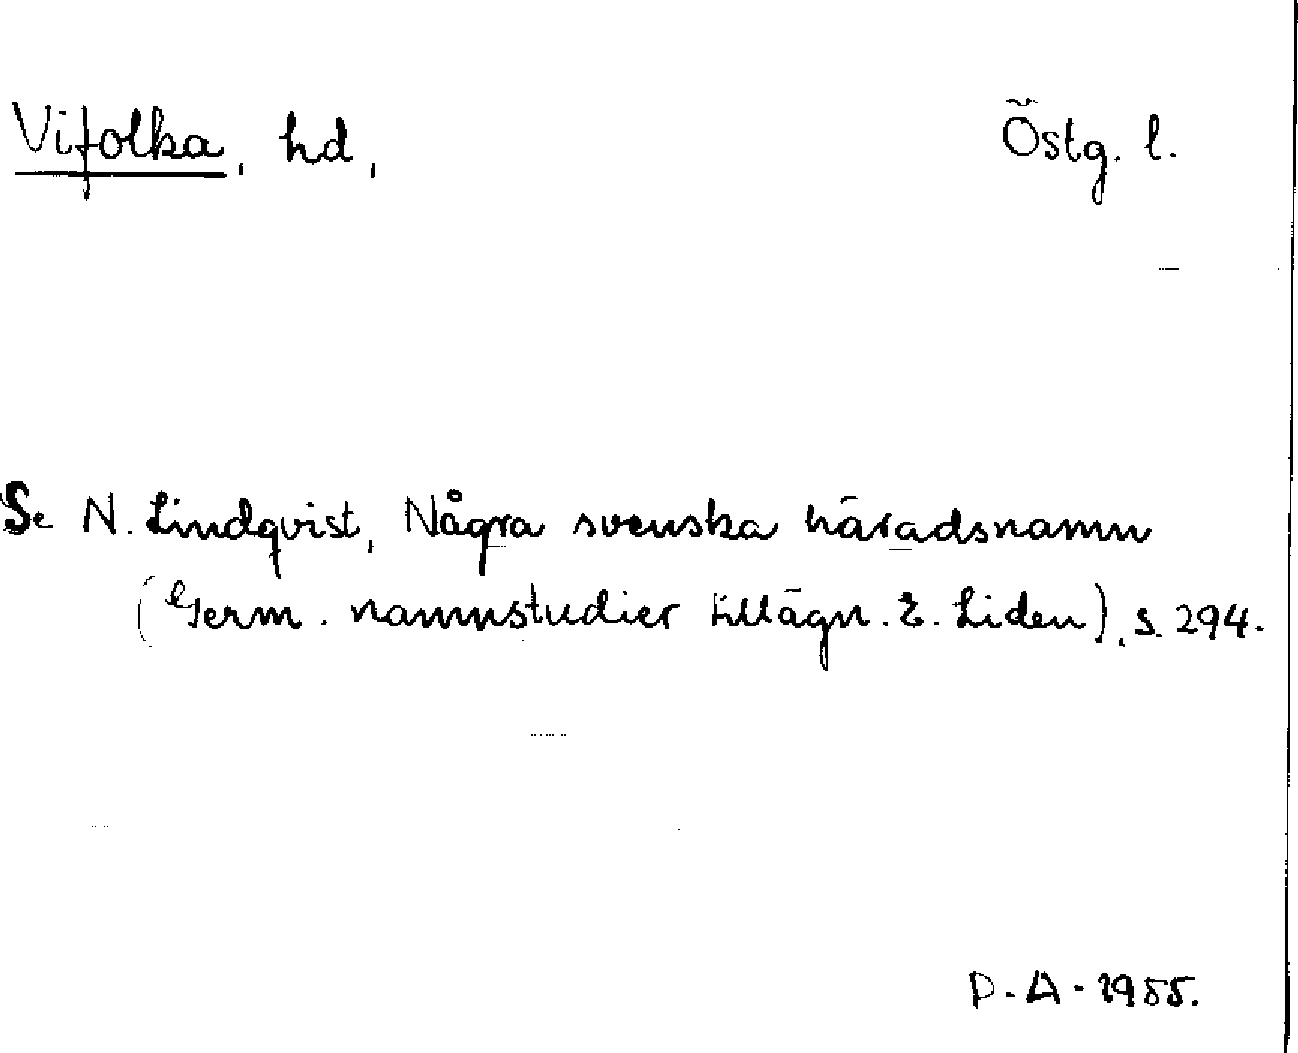 Vifolka, hd, Östg. l.
Se N. Lindqvist, Några svenska häradsnamn
(Germ. namnstudier tillägn. E. Liden), s. 294.
D. A. 1955.